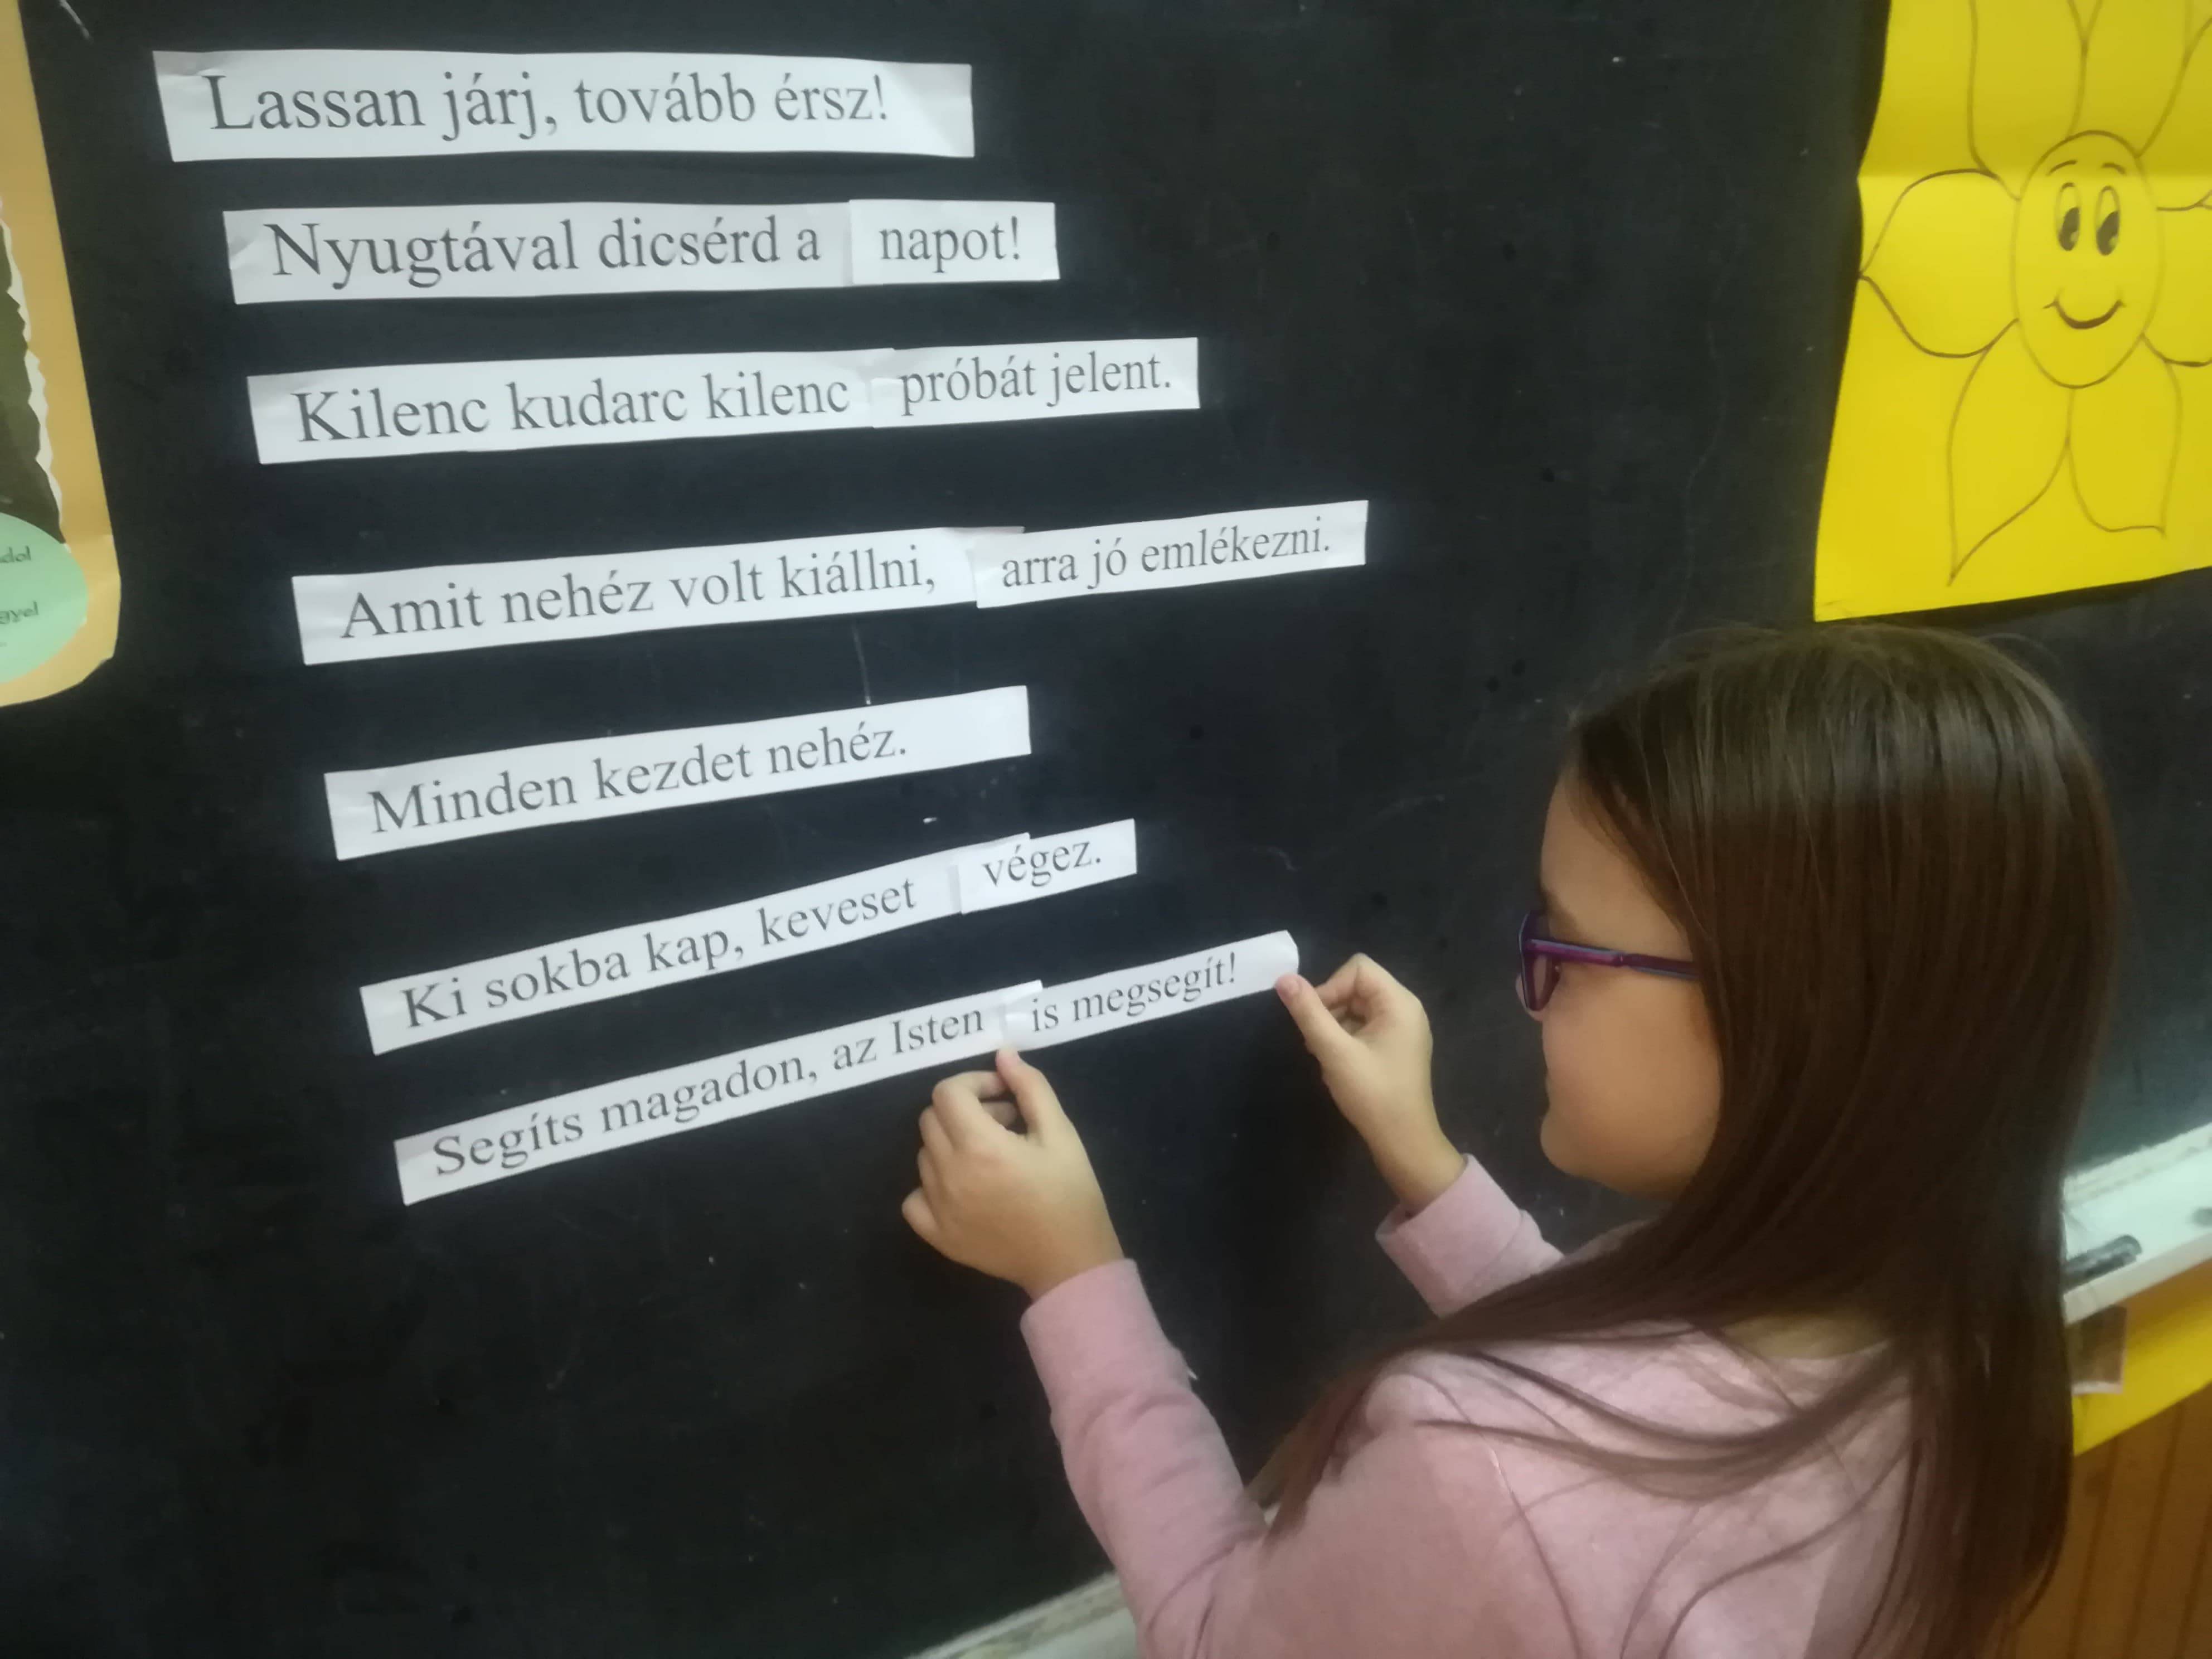 Lassan járj, tovább érsz!
Nyugtával dicsérd a napot!
Kilenc kudarc kilenc próbát jelent.
Amit nehéz volt kiállni, arra jó emlékezni.
Minden kezdet nehéz.
Ki sokba kap, keveset végez.
Segíts magadon, az Isten is megsegít!